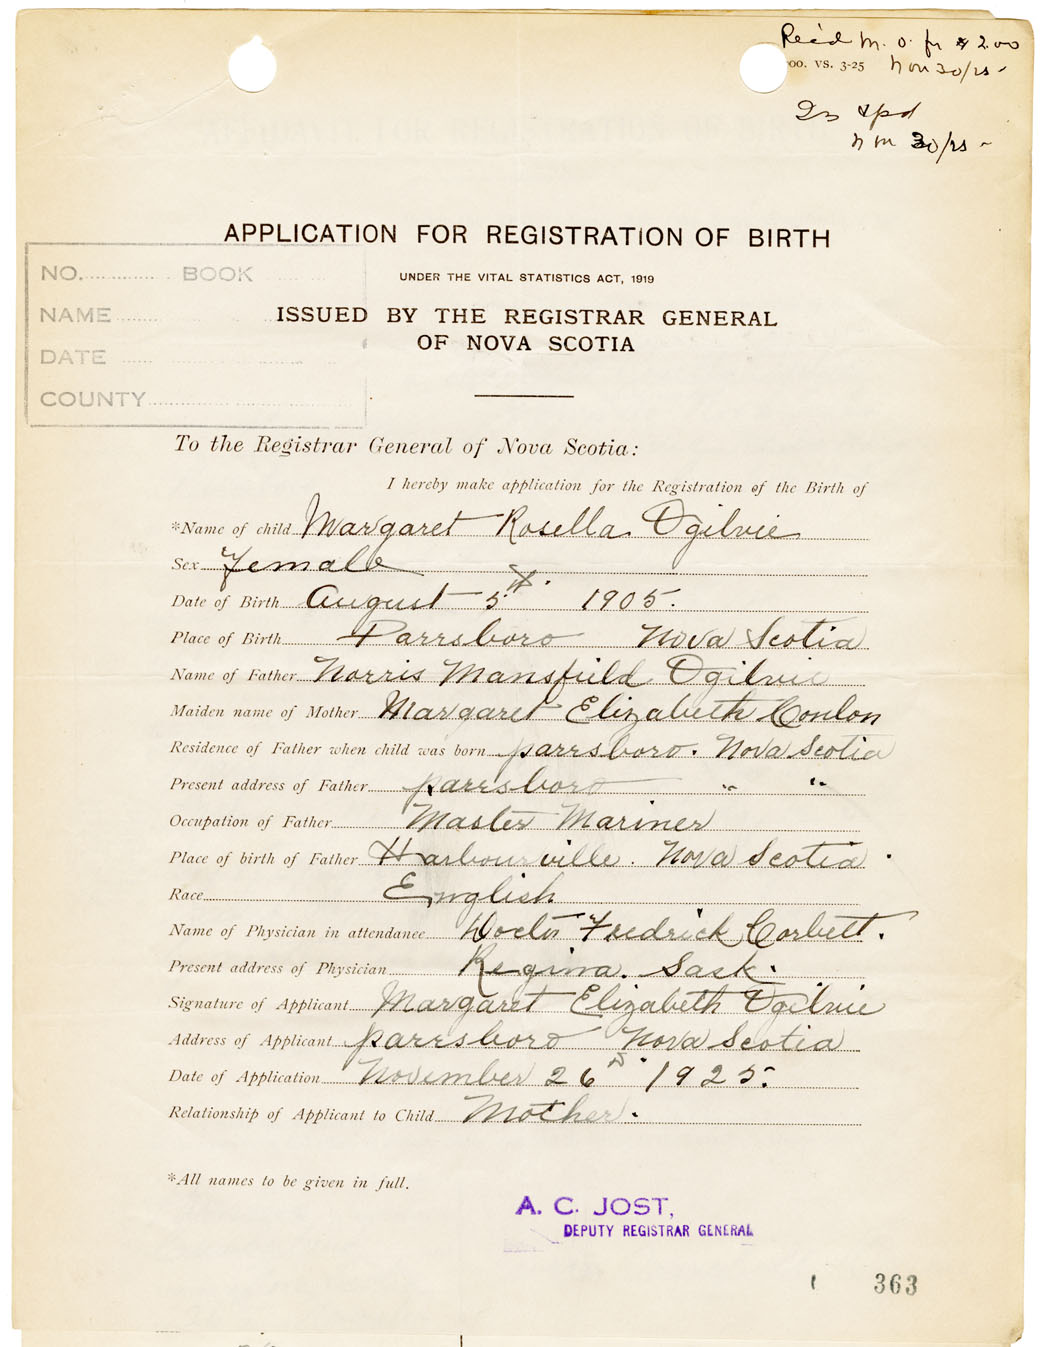 Rec'd M. O. for $2.00
000. VS. 3-25 Nov 30/25
Ds spd
Nov 30/25
APPLICATION FOR REGISTRATION OF BIRTH
UNDER THE VITAL STATISTICS ACT, 1919
ISSUED BY THE REGISTRAR GENERAL
OF NOVA SCOTIA
NO. BOOK
NAME
DATE
COUNTY
To the Registrar General of Nova Scotia:
I hereby make application for the Registration of the Birth of
*Name of child Margaret Rosella Ogilvie
Sex Female
Date of Birth August 5th. 1905.
Place of Birth Parrsboro Nova Scotia
Name of Father Norris Mansfield Ogilvie
Maiden name of Mother Margaret Elizabeth Conlon
Residence of Father when child was born parrsboro. Nova Scotia
Present address of Father parrsboro " "
Occupation of Father Master Mariner
Place of birth of Father Harbourville. Nova Scotia.
Race English
Name of Physician in attendance Doctor Fredrick Corbett.
Present address of Physician Regina. Sask.
Signature of Applicant Margaret Elizabeth Ogilvie
Address of Applicant parrsboro Nova Scotia
Date of Application November 26th. 1925.
Relationship of Applicant to Child Mother.
*All names to be given in full.
A. C. JOST,
DEPUTY REGISTRAR GENERAL
363